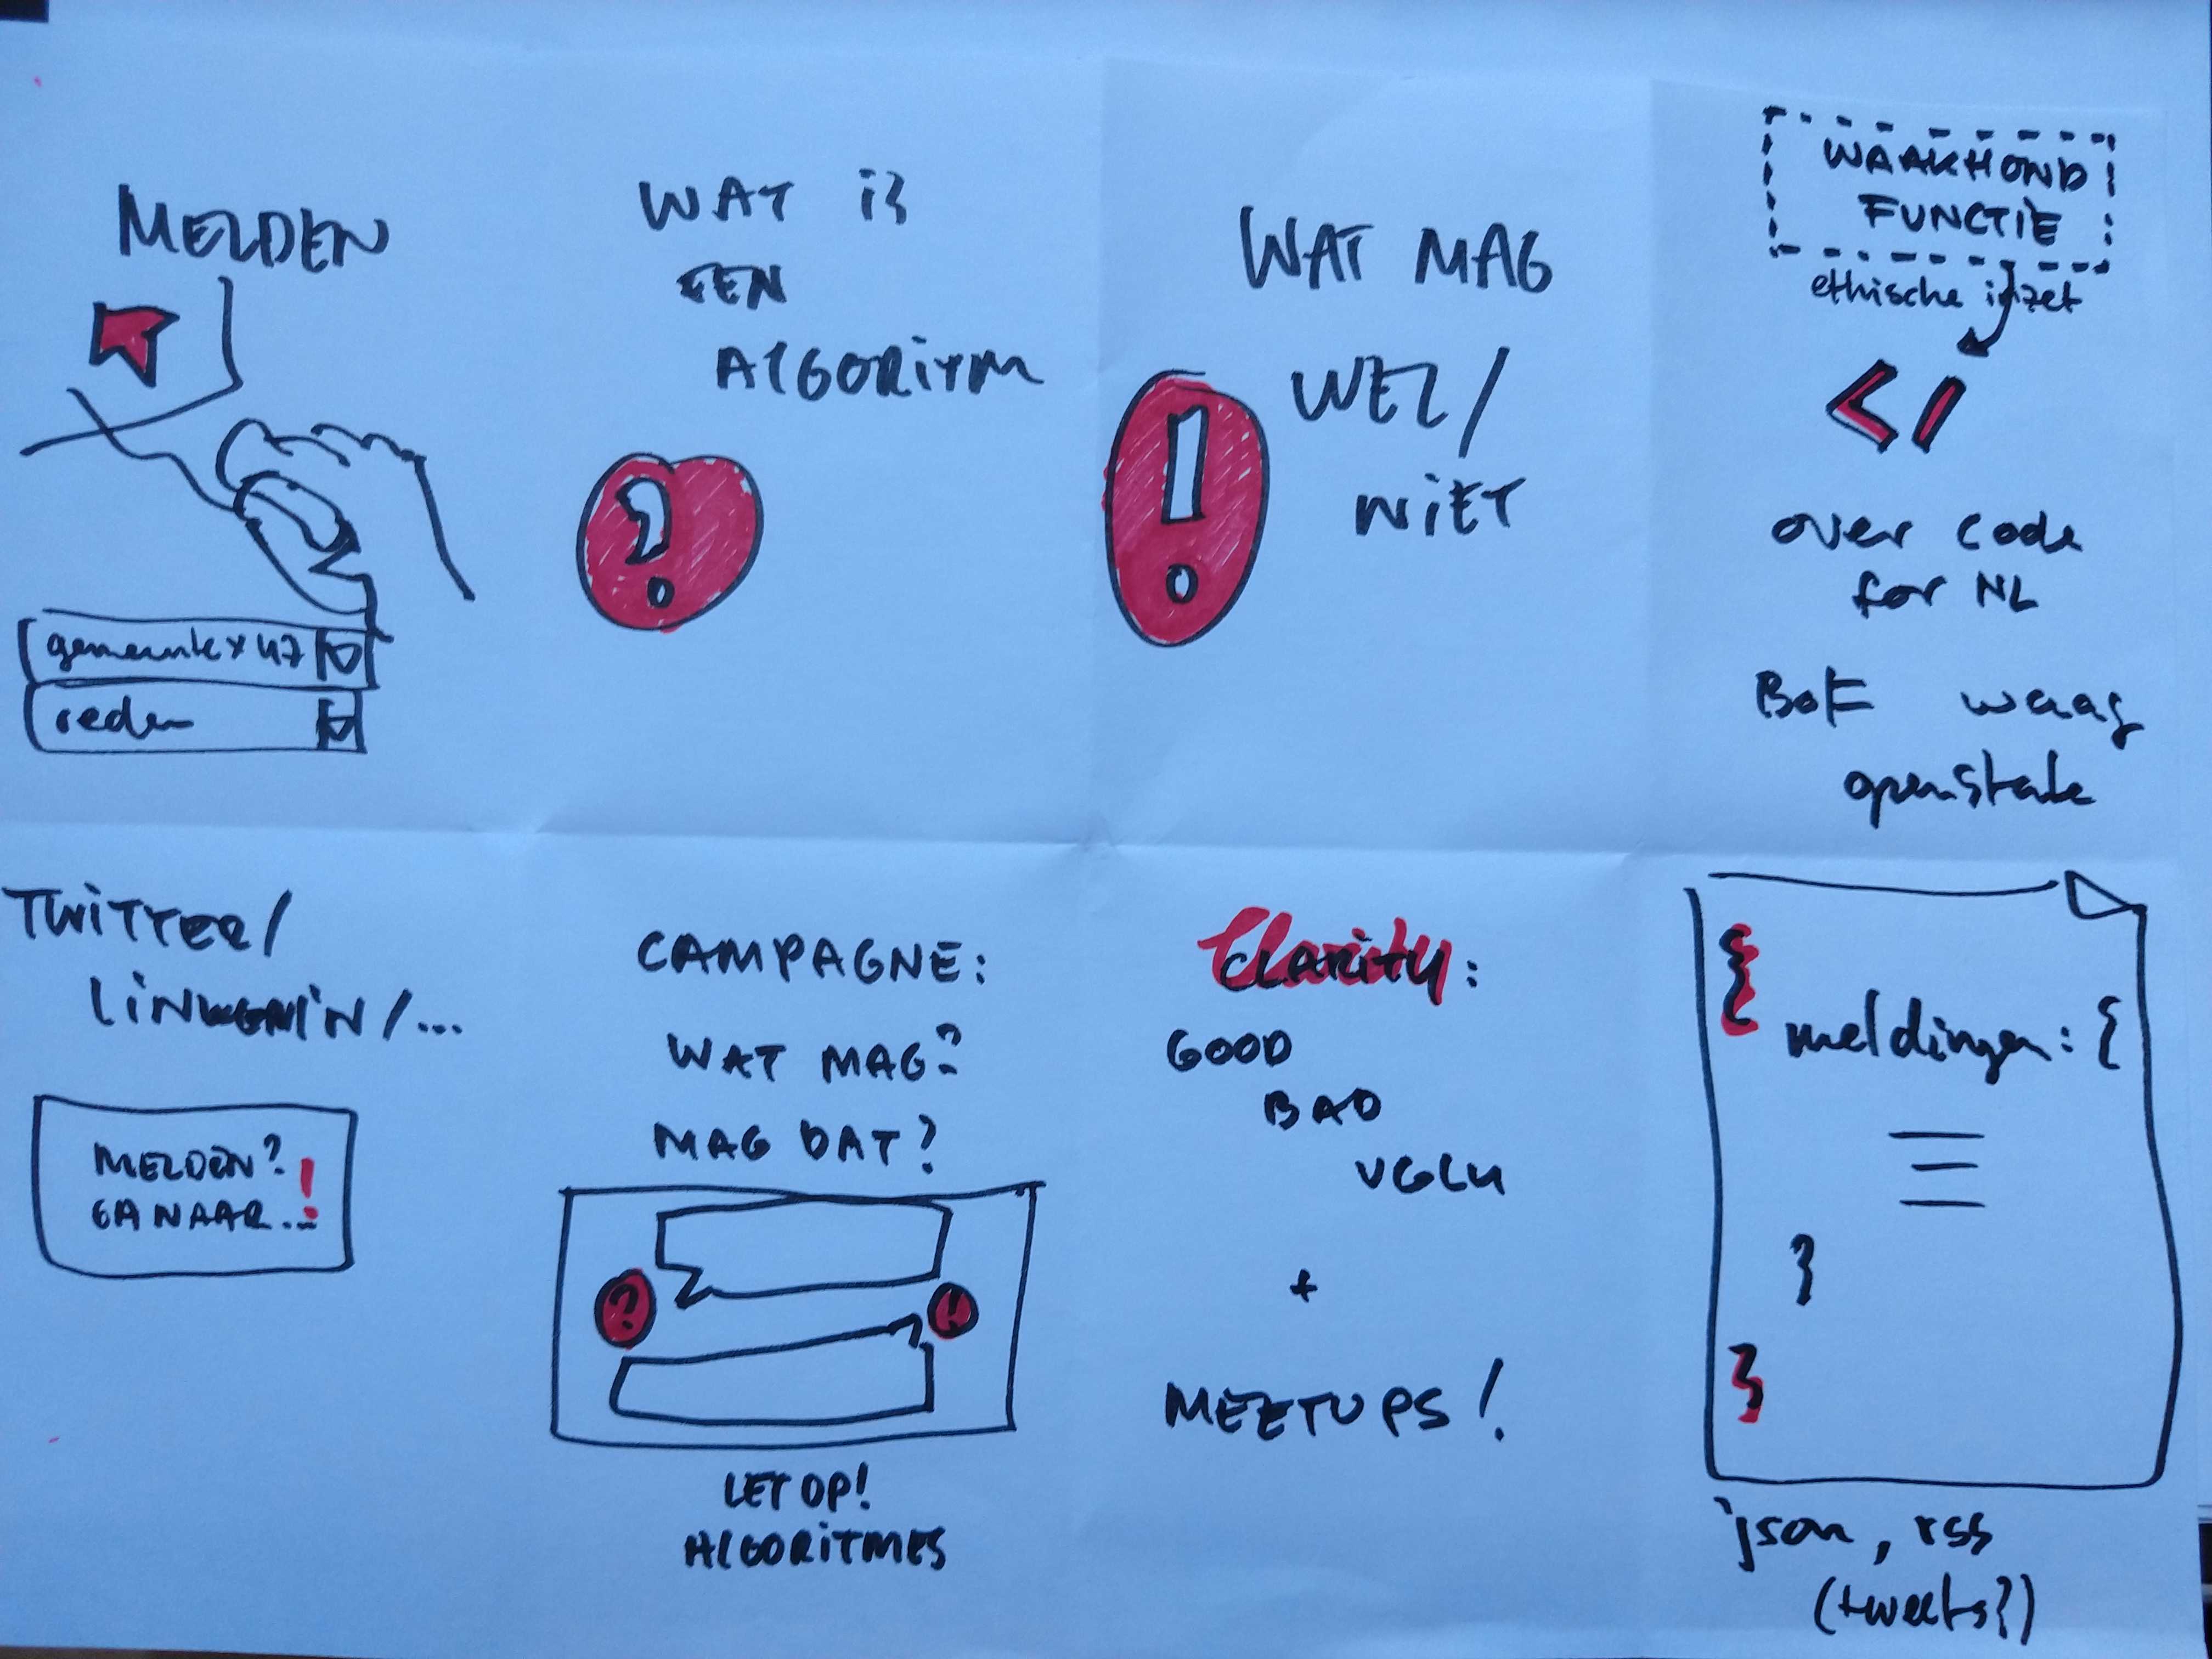 MELDEN
gemeente x 47
reden
WAT is
EEN
ALGORITM
?
WAT MAG
WEL/
NIET
!
WAAKHOND
FUNCTIE
ethische inzet
</
over code
for NL
BoF waag
openstate
TWITTER/
LINKEDIN/...
MELDEN?
GA NAAR...!
CAMPAGNE:
WAT MAG?
MAG DAT?
?
!
LET OP!
ALGORITMES
CLARITY:
GOOD
BAD
UGLY
+
MEETUPS!
{
meldingen: {
}
}
json, rss
(tweets?)